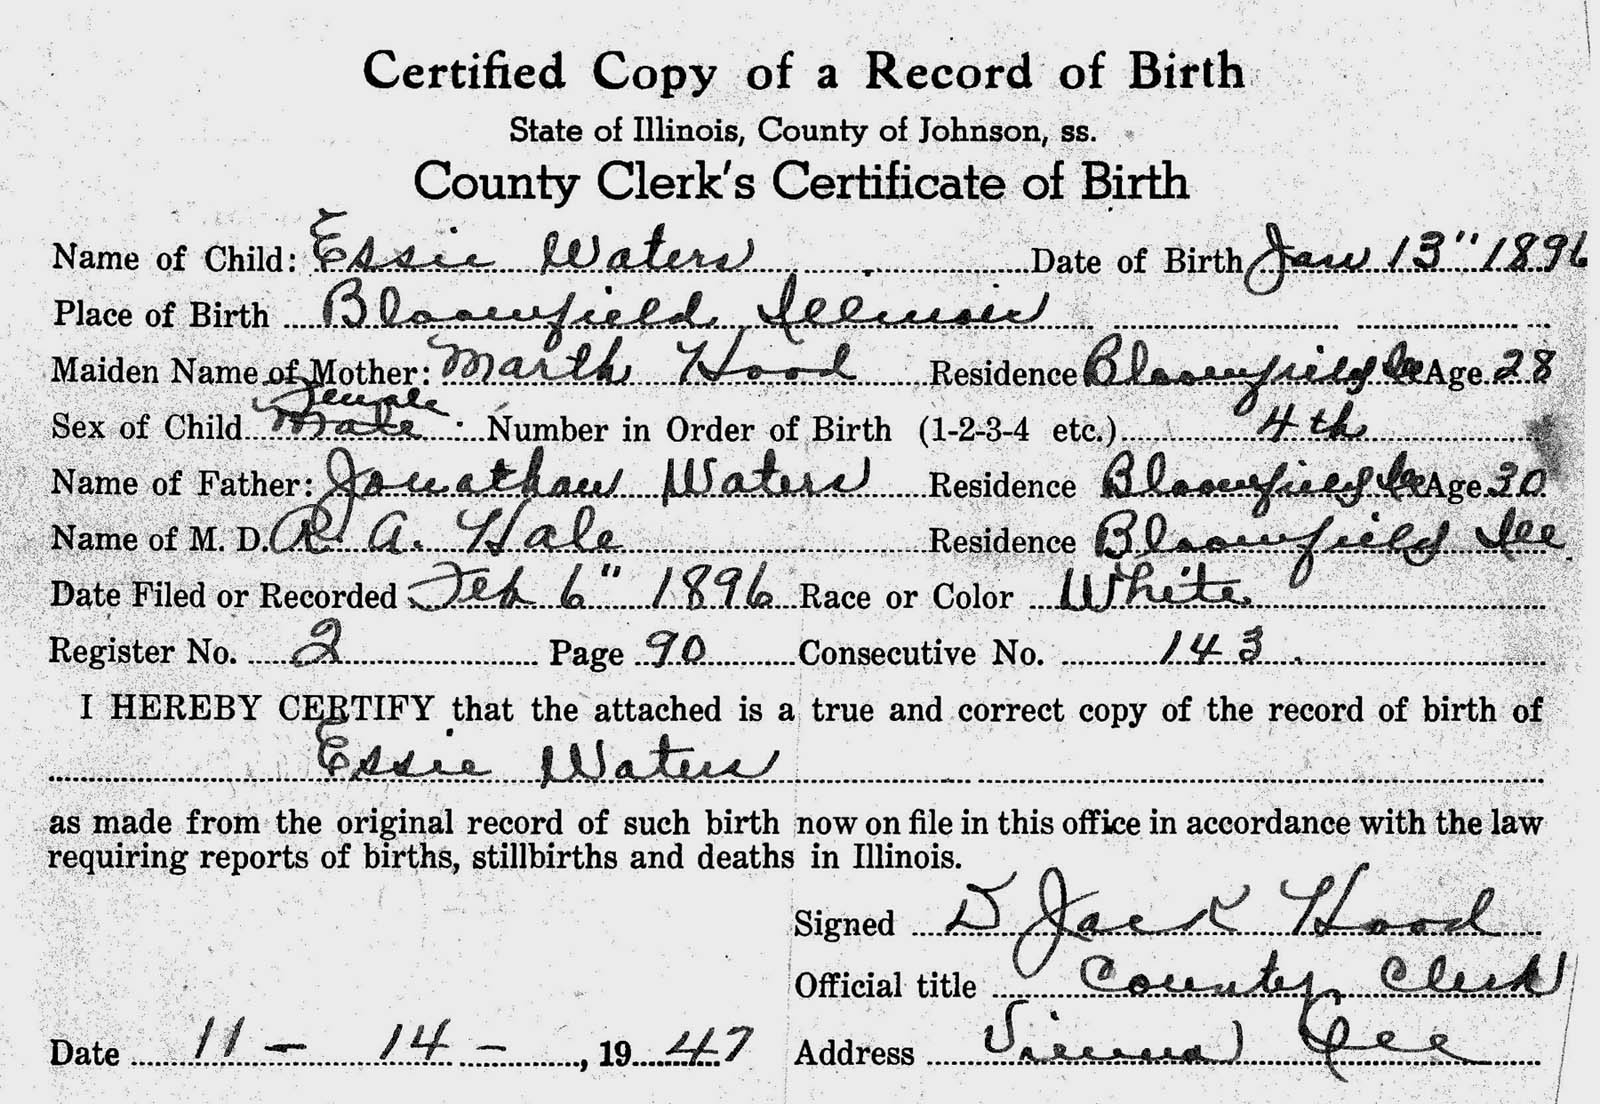 Certified Copy of a Record of Birth
State of Illinois, County of Johnson, ss.
County Clerk's Certificate of Birth
Name of Child: Essie Waters Date of Birth Jan 13" 1896
Place of Birth Bloomfield, Illinois
Maiden Name of Mother: Marth Hood Residence Bloomfield Ill Age 28
Female
Sex of Child Male Number in Order of Birth (1-2-3-4 etc.) 4th
Name of Father: Jonathan Waters Residence Bloomfield Ill Age 30
Name of M. D. R. A. Hale Residence Bloomfield Ill.
Date Filed or Recorded Feb 6" 1896 Race or Color White
Register No. 2 Page 90 Consecutive No. 143
I HEREBY CERTIFY that the attached is a true and correct copy of the record of birth of
Essie Waters
as made from the original record of such birth now on file in this office in accordance with the law
requiring reports of births, stillbirths and deaths in Illinois.
Signed D Jack Hood
Official title County Clerk
Date 11 - 14 - , 1947 Address Vienna, Ill